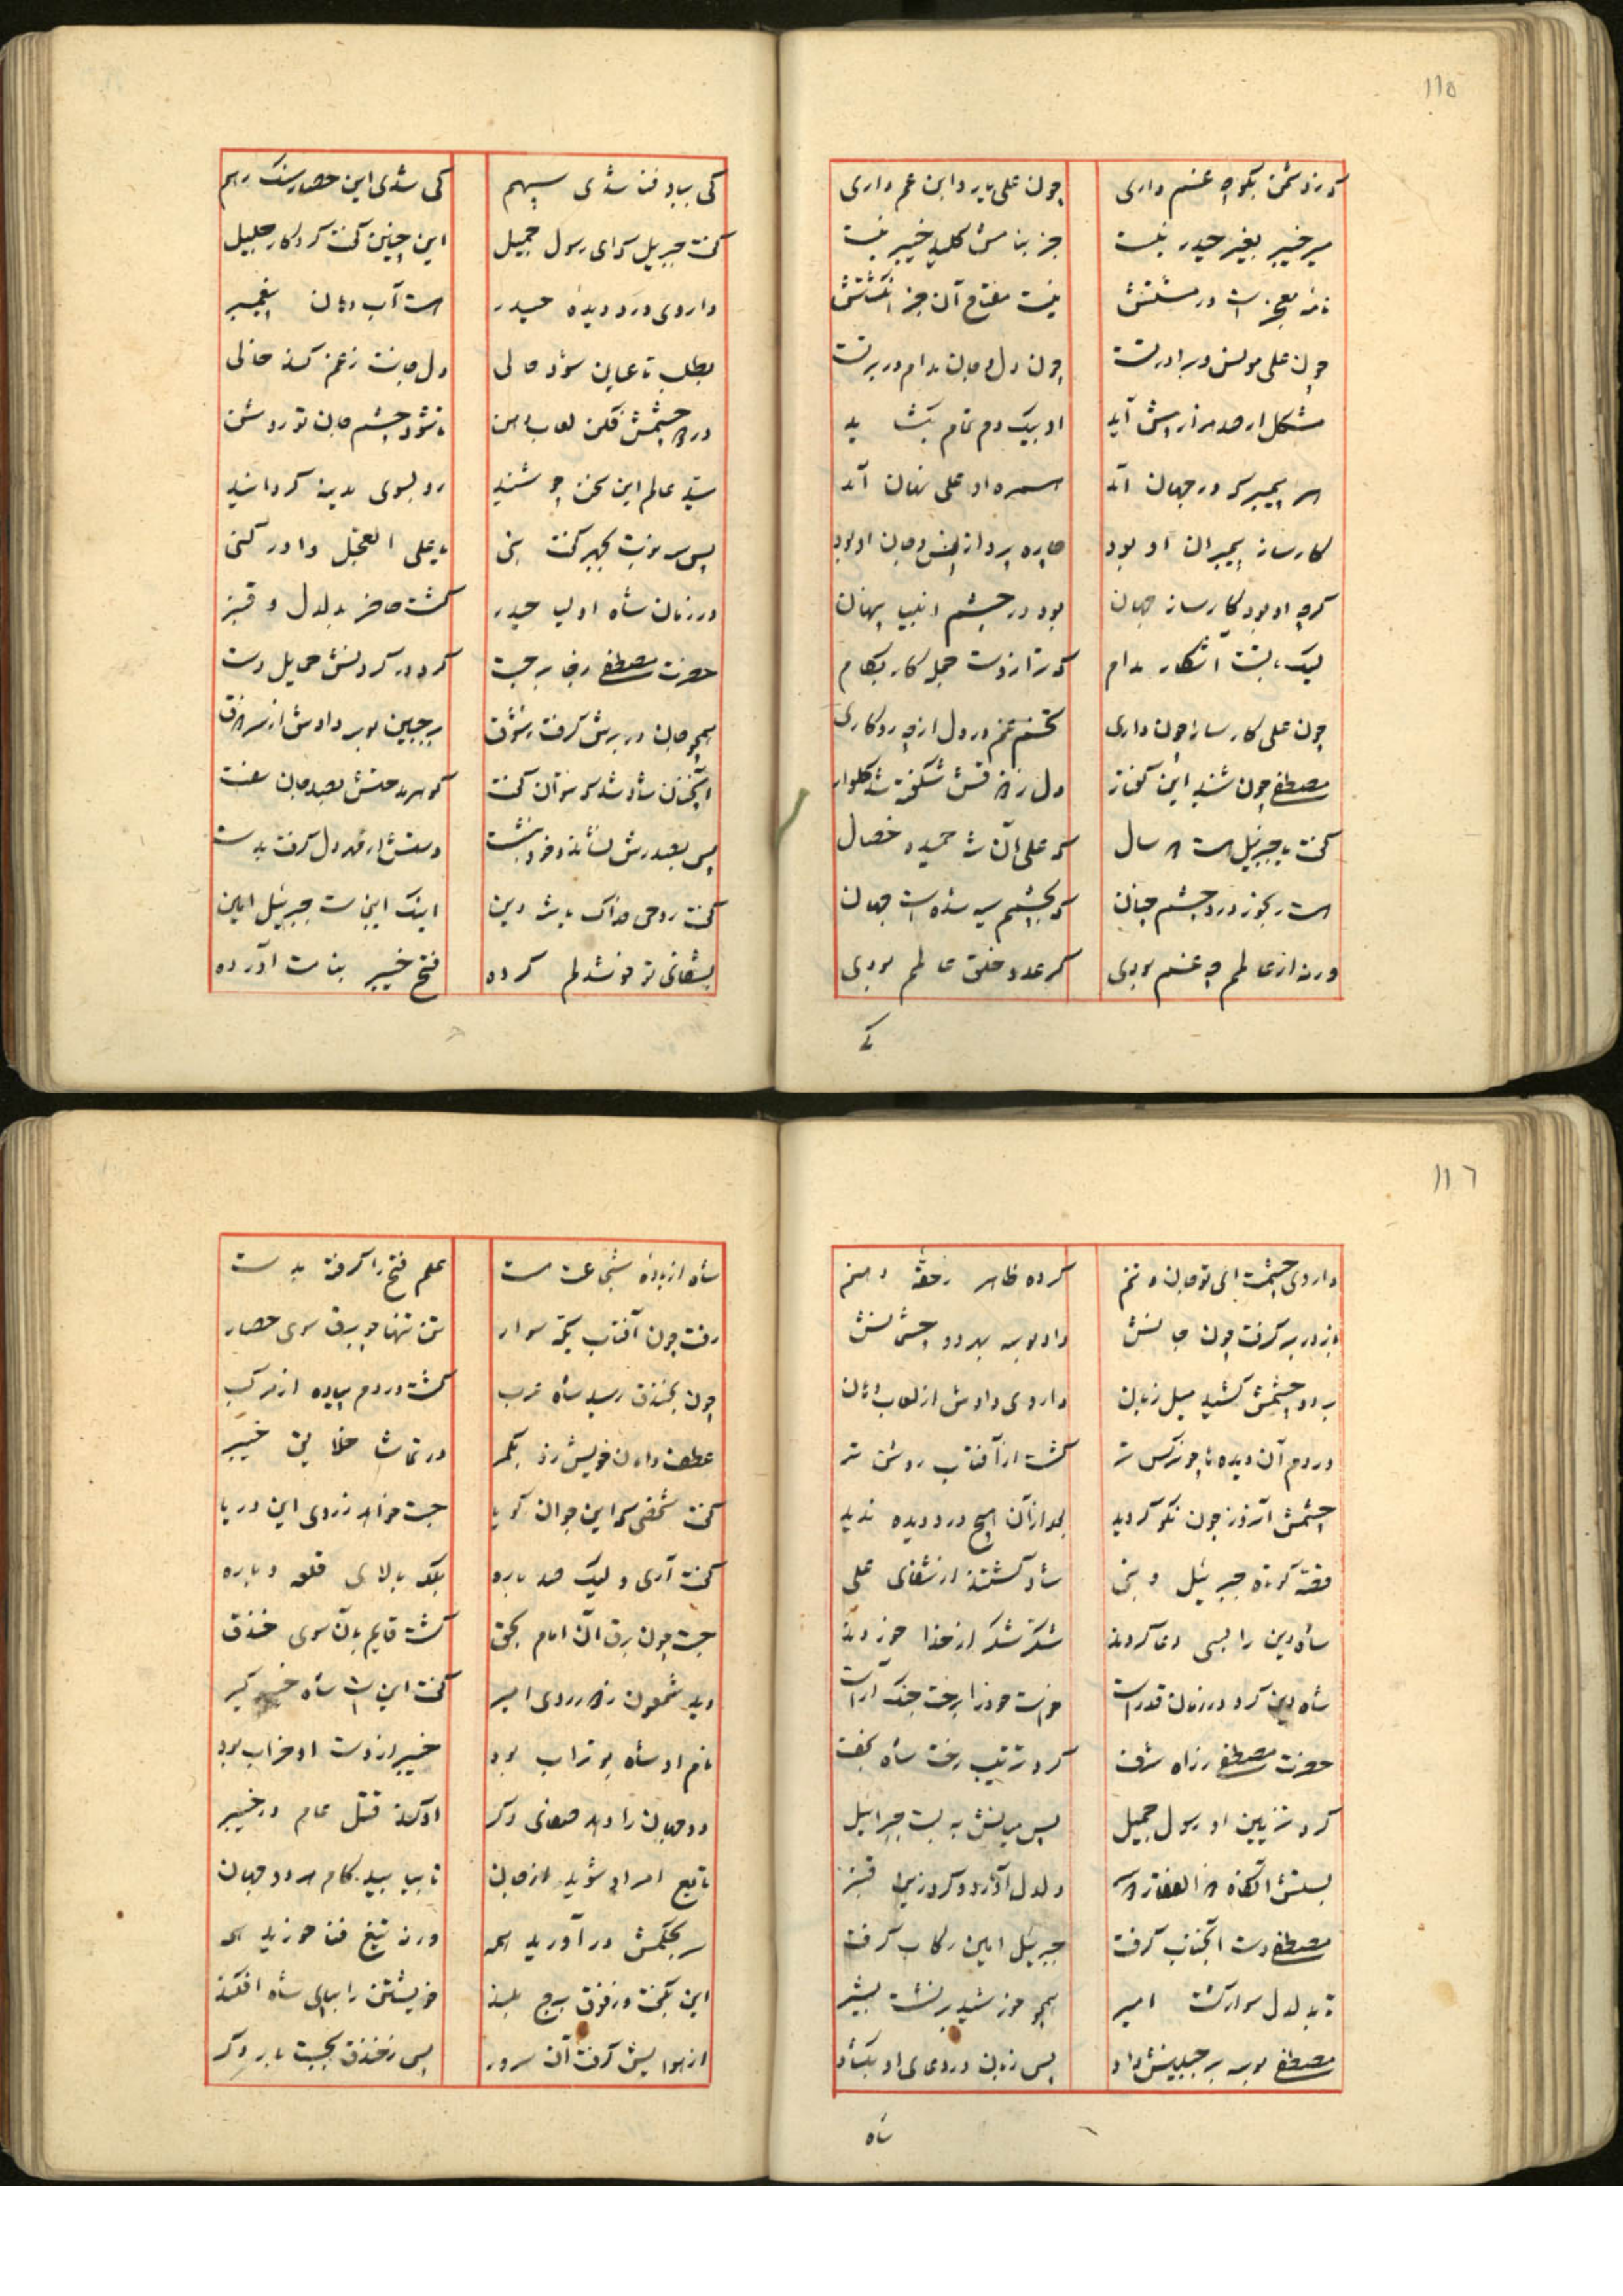 ١١٥
که ز دشمن بگو چه غم داری چون علی یار و ابن عم داری
میر خیبر بغیر حیدر نیست جز بنامش کلید خیبر نیست
نیست مفتاح آن جز انگشتش
چون علی مونس و برادر تست چون دل و جان مدام در بر تست
مشکل ار صد هزار پیش آید او بیک دم تمام بگشاید
هر پیمبر که در جهان آمد همره او علی نهان آمد
کارساز پیمبران او بود چاره پرداز انس و جان او بود
گرچه او بود کارساز جهان بود در چشم انبیا پنهان
لیک با تست آشکار مدام که ترا زوست جمله کار بکام
چون علی کارساز چون داری تخم غم در دل از چه رو کاری
مصطفی چون شنید این گفتار دل زارش شکفته شد گلوار
گفت با جبرئیل که علی آن شه حمیده خصال
است رنجور درد چشم چنان که بچشمم سیه شده است جهان
ورنه از عالمم چه غم بودی گر عدو خلق عالمم بودی
کی
کی بباد فنا شدی سپهم کی شدی این حصار سنگ رهم
گفت جبریل کای رسول جمیل این چنین گفت کردکار جلیل
داروی درد دیده حیدر است آب دهان پیغمبر
بطلب تا عیان شود حالی دل و جانت ز غم کند خالی
در چشمش فکن لعاب دهن تا شود چشم جان تو روشن
سید عالم این سخن چو شنید رو بسوی مدینه گردانید
پس سه نوبت بجهر گفت نبی یا علی العجل و ادرکنی
در زمان شاه اولیا حیدر گشت حاضر بدلدل و قنبر
حضرت مصطفی ز جا برجست کرد در گردنش حمایل دست
همچو جان در برش گرفت ز شوق بر جبین بوسه دادش از سر ذوق
آنچنان شاد شد که نتوان گفت گوهر مدحتش بصد جان سفت
پس بصدرش نشاند و خود بنشست دستش از مهر دل گرفت بدست
گفت روحی فداک یا شه دین اینک این است جبرئیل امین
بشفای تو خوشدلم کرده فتح خیبر بنامت آورده
١١٦
داروی چشمت ای تو جان و تنم کرده ظاهر ز حقه دهنم
باز در بر گرفت چون جانش داد بوسه بهر دو چشمانش
بر دو چشمش کشید میل زبان داروی دادش از لعاب دهان
در دم آن دیده ها چو نرکس تر گشت از آفتاب روشن تر
چشمش آنروز چون نکو گردید بعد از آن هیچ درد دیده ندید
قصه کوتاه جبرئیل و نبی شاد گشتند از شفای علی
شاه دین را بسی دعا کردند شکر شکر از خدا خوردند
شاه دین کرد در زمان قد راست خواست خود را برخت جنگ آراست
حضرت مصطفی ز راه شرف کرد ترتیب رخت شاه نجف
کرد تزیین او رسول جمیل پس میانش به بست جبرائیل
بستش آنگاه ذوالفقار دلدل آورد و کرد زین قنبر
مصطفی دست آنجناب گرفت جبرئیل امین رکاب گرفت
تا بدلدل سوار گشت امیر همچو خورشید بر نشست بشیر
مصطفی بوسه بر جبینش داد پس زبان در دعای او بگشاد
شاه
شاه از باده شجاعت مست علم فتح را گرفته بدست
رفت چون آفتاب یکه سوار تن تنها چو برق سوی حصار
چون بخندق رسید شاه عرب گشت در دم پیاده از مرکب
عطف دامان خویش زد بکمر در تماشا خلایق خیبر
گفت شخصی که این جوان گویا جست خواهد ز روی این دریا
گفت آری و لیک صد باره بلکه بالای قلعه و باره
جست چون برق آن امام بحق گشت قایم بآن سوی خندق
دید شمعون ز روی امیر گفت این است شاه خیبر گیر
نام او شاه بوتراب بود خیبر از دست او خراب بود
دو جهان را دهد صفای دگر او کند قتل عام در خیبر
تابع امر او شوید از جان تا بیابید کام هر دو جهان
سر بحکمش در آورید همه ورنه تیغ فنا خورید همه
این بگفت و ز فوق برج بلند خویشتن را بپای شاه افکند
از هوایش گرفت آن سرور پس ز خندق بجست بار دگر